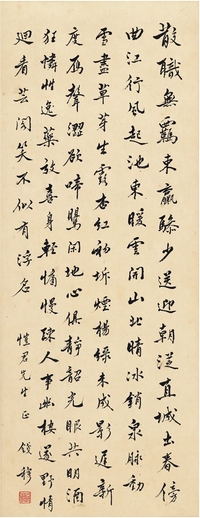 散職無羈束羸驂少送迎朝從直城出春傍
曲江行風起池東暖雲開山北晴冰銷泉脈動
雪盡草芽生露杏紅初坼煙楊綠未成影遲新
度雁聲澀欲啼鶯閒地心俱靜韶光眼共明酒
狂憐性逸藥效喜身輕慵慢疎人事幽棲遂野情
迴看芸閣笑不似有浮名
愷君先生正 錢穆